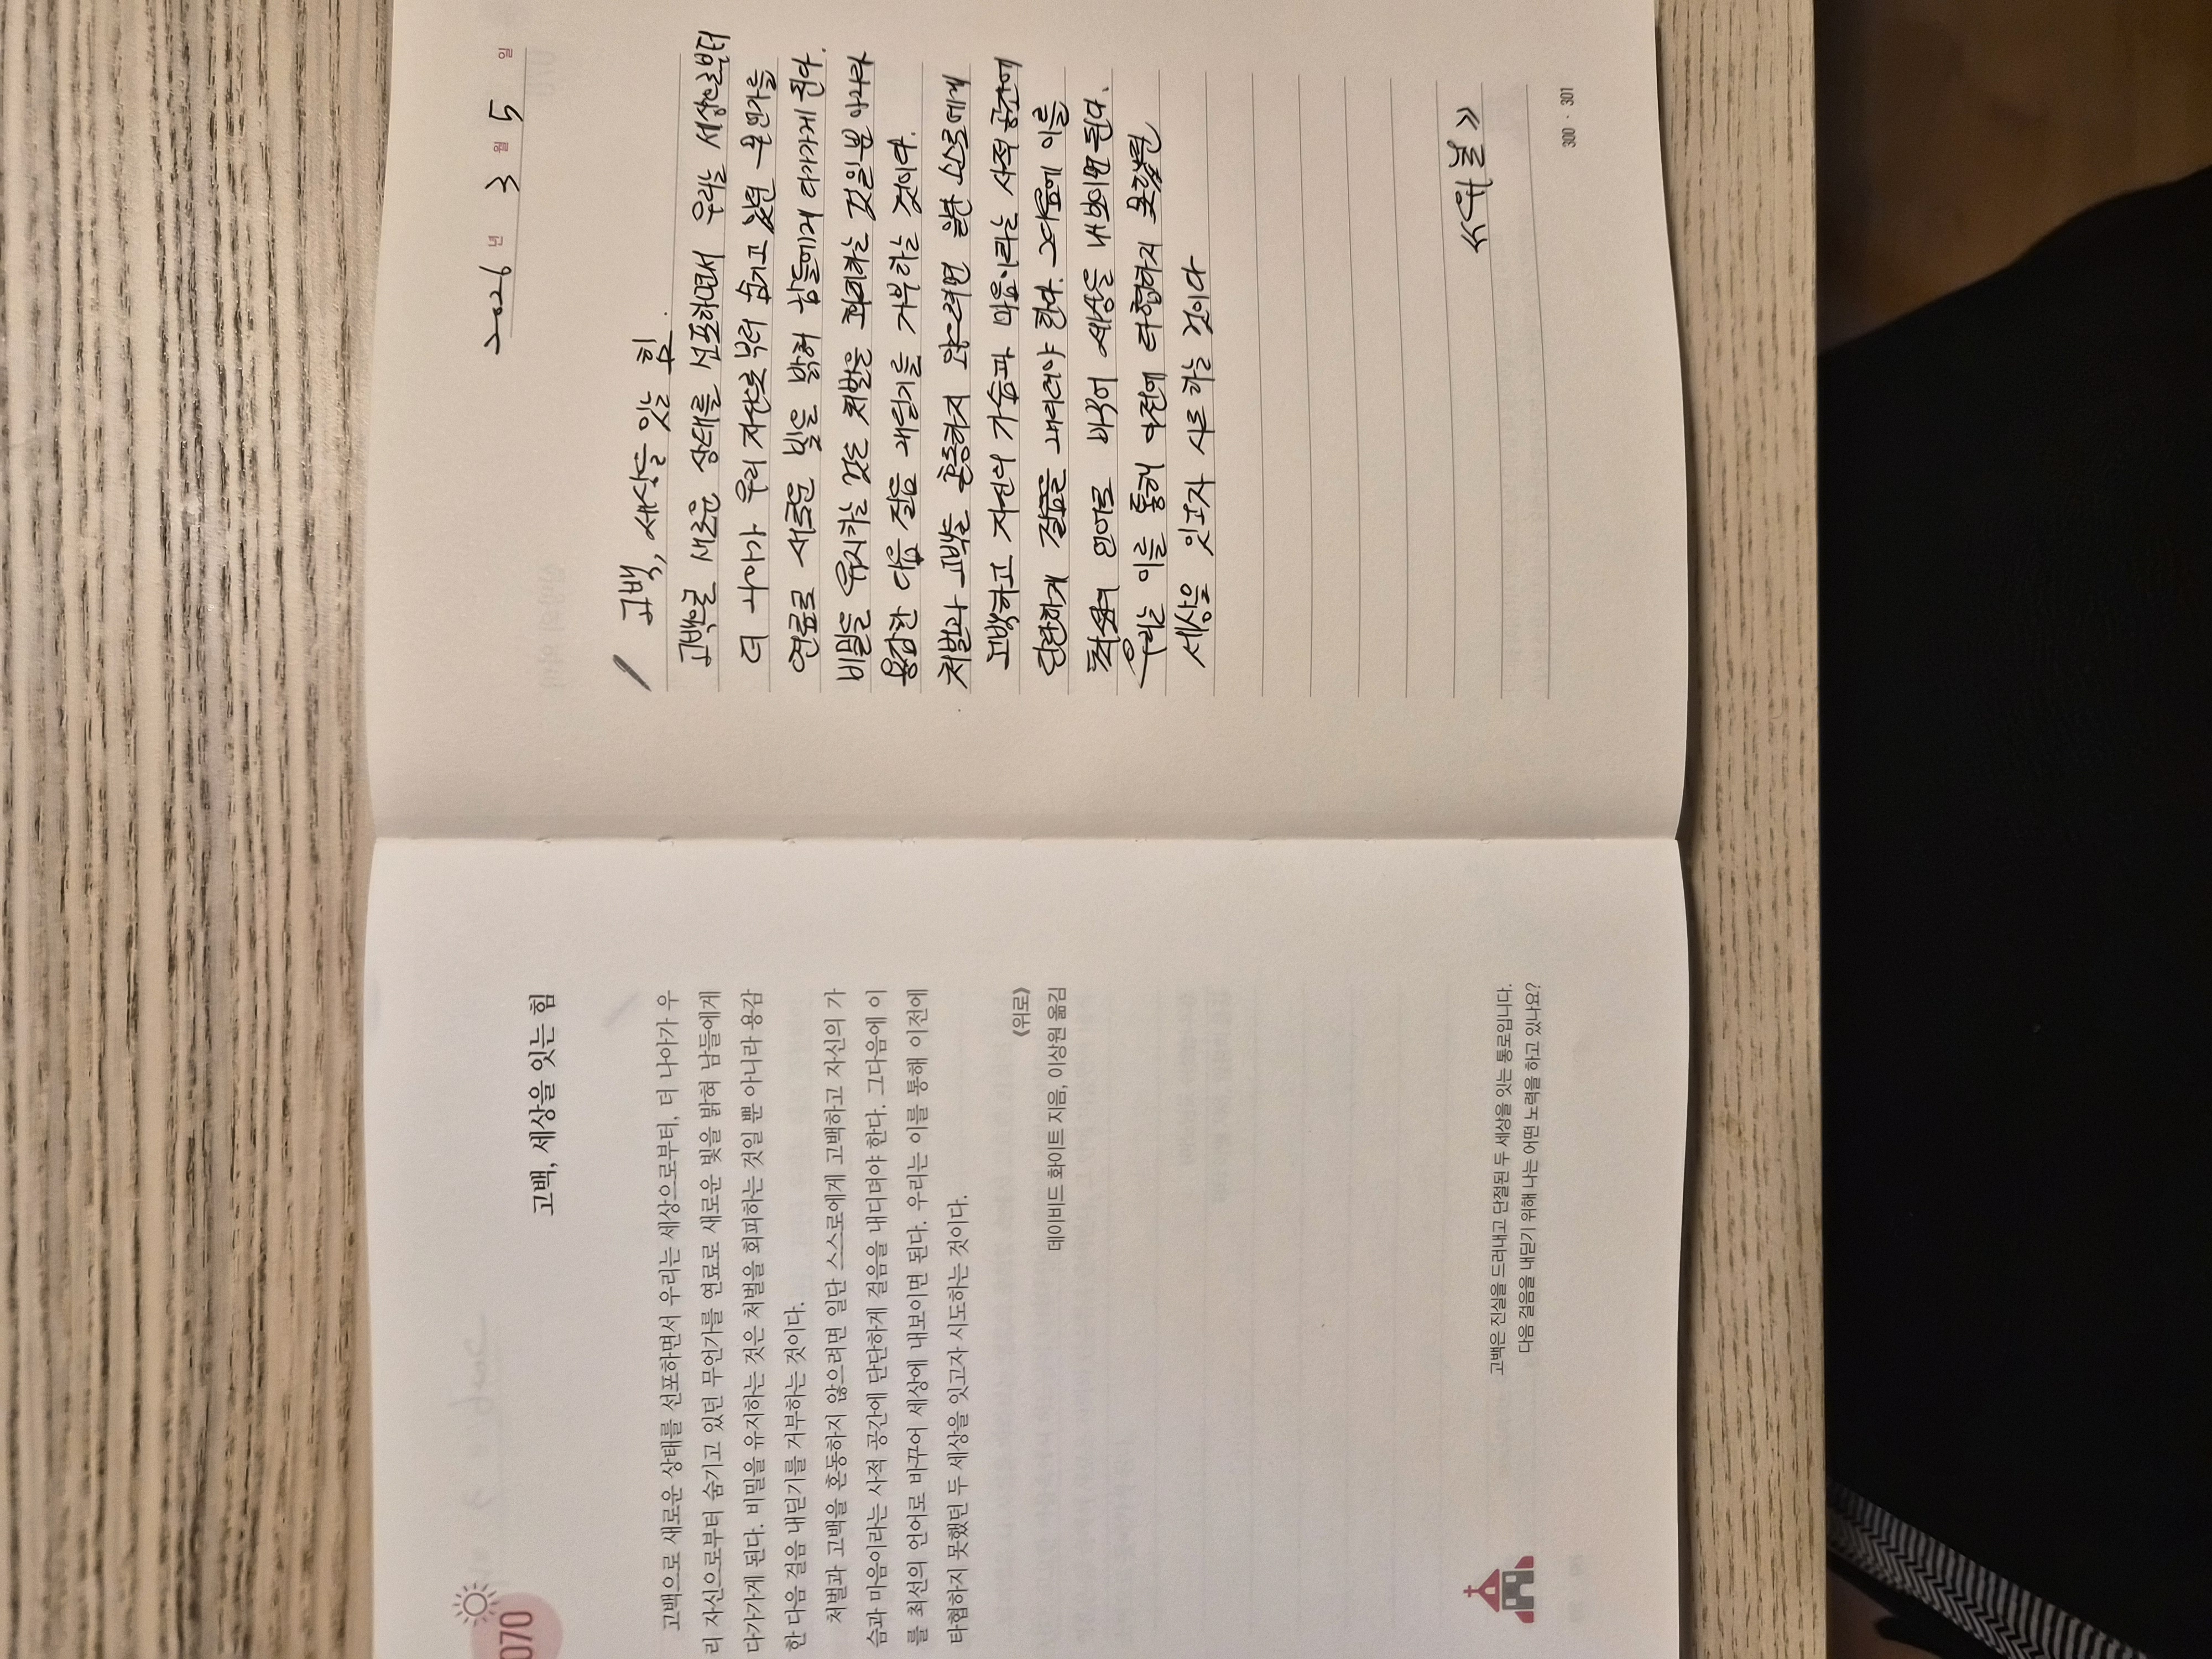 070
고백, 세상을 잇는 힘
고백으로 새로운 상태를 선포하면서 우리는 세상으로부터, 더 나아가 우
리 자신으로부터 숨기고 있던 무언가를 연료로 새로운 빛을 밝혀 남들에게
다가가게 된다. 비밀을 유지하는 것은 처벌을 회피하는 것일 뿐 아니라 용감
한 다음 걸음 내딛기를 거부하는 것이다.
처벌과 고백을 혼동하지 않으려면 일단 스스로에게 고백하고 자신의 가
슴과 마음이라는 사적 공간에 단단하게 걸음을 내디뎌야 한다. 그다음에 이
를 최선의 언어로 바꾸어 세상에 내보이면 된다. 우리는 이를 통해 이전에
타협하지 못했던 두 세상을 잇고자 시도하는 것이다.
《위로》
데이비드 화이트 지음, 이상원 옮김
고백은 진실을 드러내고 단절된 두 세상을 잇는 통로입니다.
다음 걸음을 내딛기 위해 나는 어떤 노력을 하고 있나요?
2026 년 3 월 5 일
고백, 세상을 잇는 힘.
고백으로 새로운 상태를 선포하면서 우리는 세상으로부터
더 나아가 우리 자신으로부터 숨기고 있던 무언가를
연료로 새로운 빛을 밝혀 남들에게 다가가게 된다.
비밀을 유지하는 것은 처벌을 회피하는 것일 뿐 아니라
용감한 다음 걸음 내딛기를 거부하는 것이다.
처벌과 고백을 혼동하지 않으려면 일단 스스로에게
고백하고 자신의 가슴과 마음이라는 사적 공간에
단단하게 걸음을 내디뎌야 한다. 그다음에 이를
최선의 언어로 바꾸어 세상을 내보이면 된다.
우리는 이를 통해 이전에 타협하지 못했던
세상을 잇고자 시도하는 것이다
《위로》
300 · 301